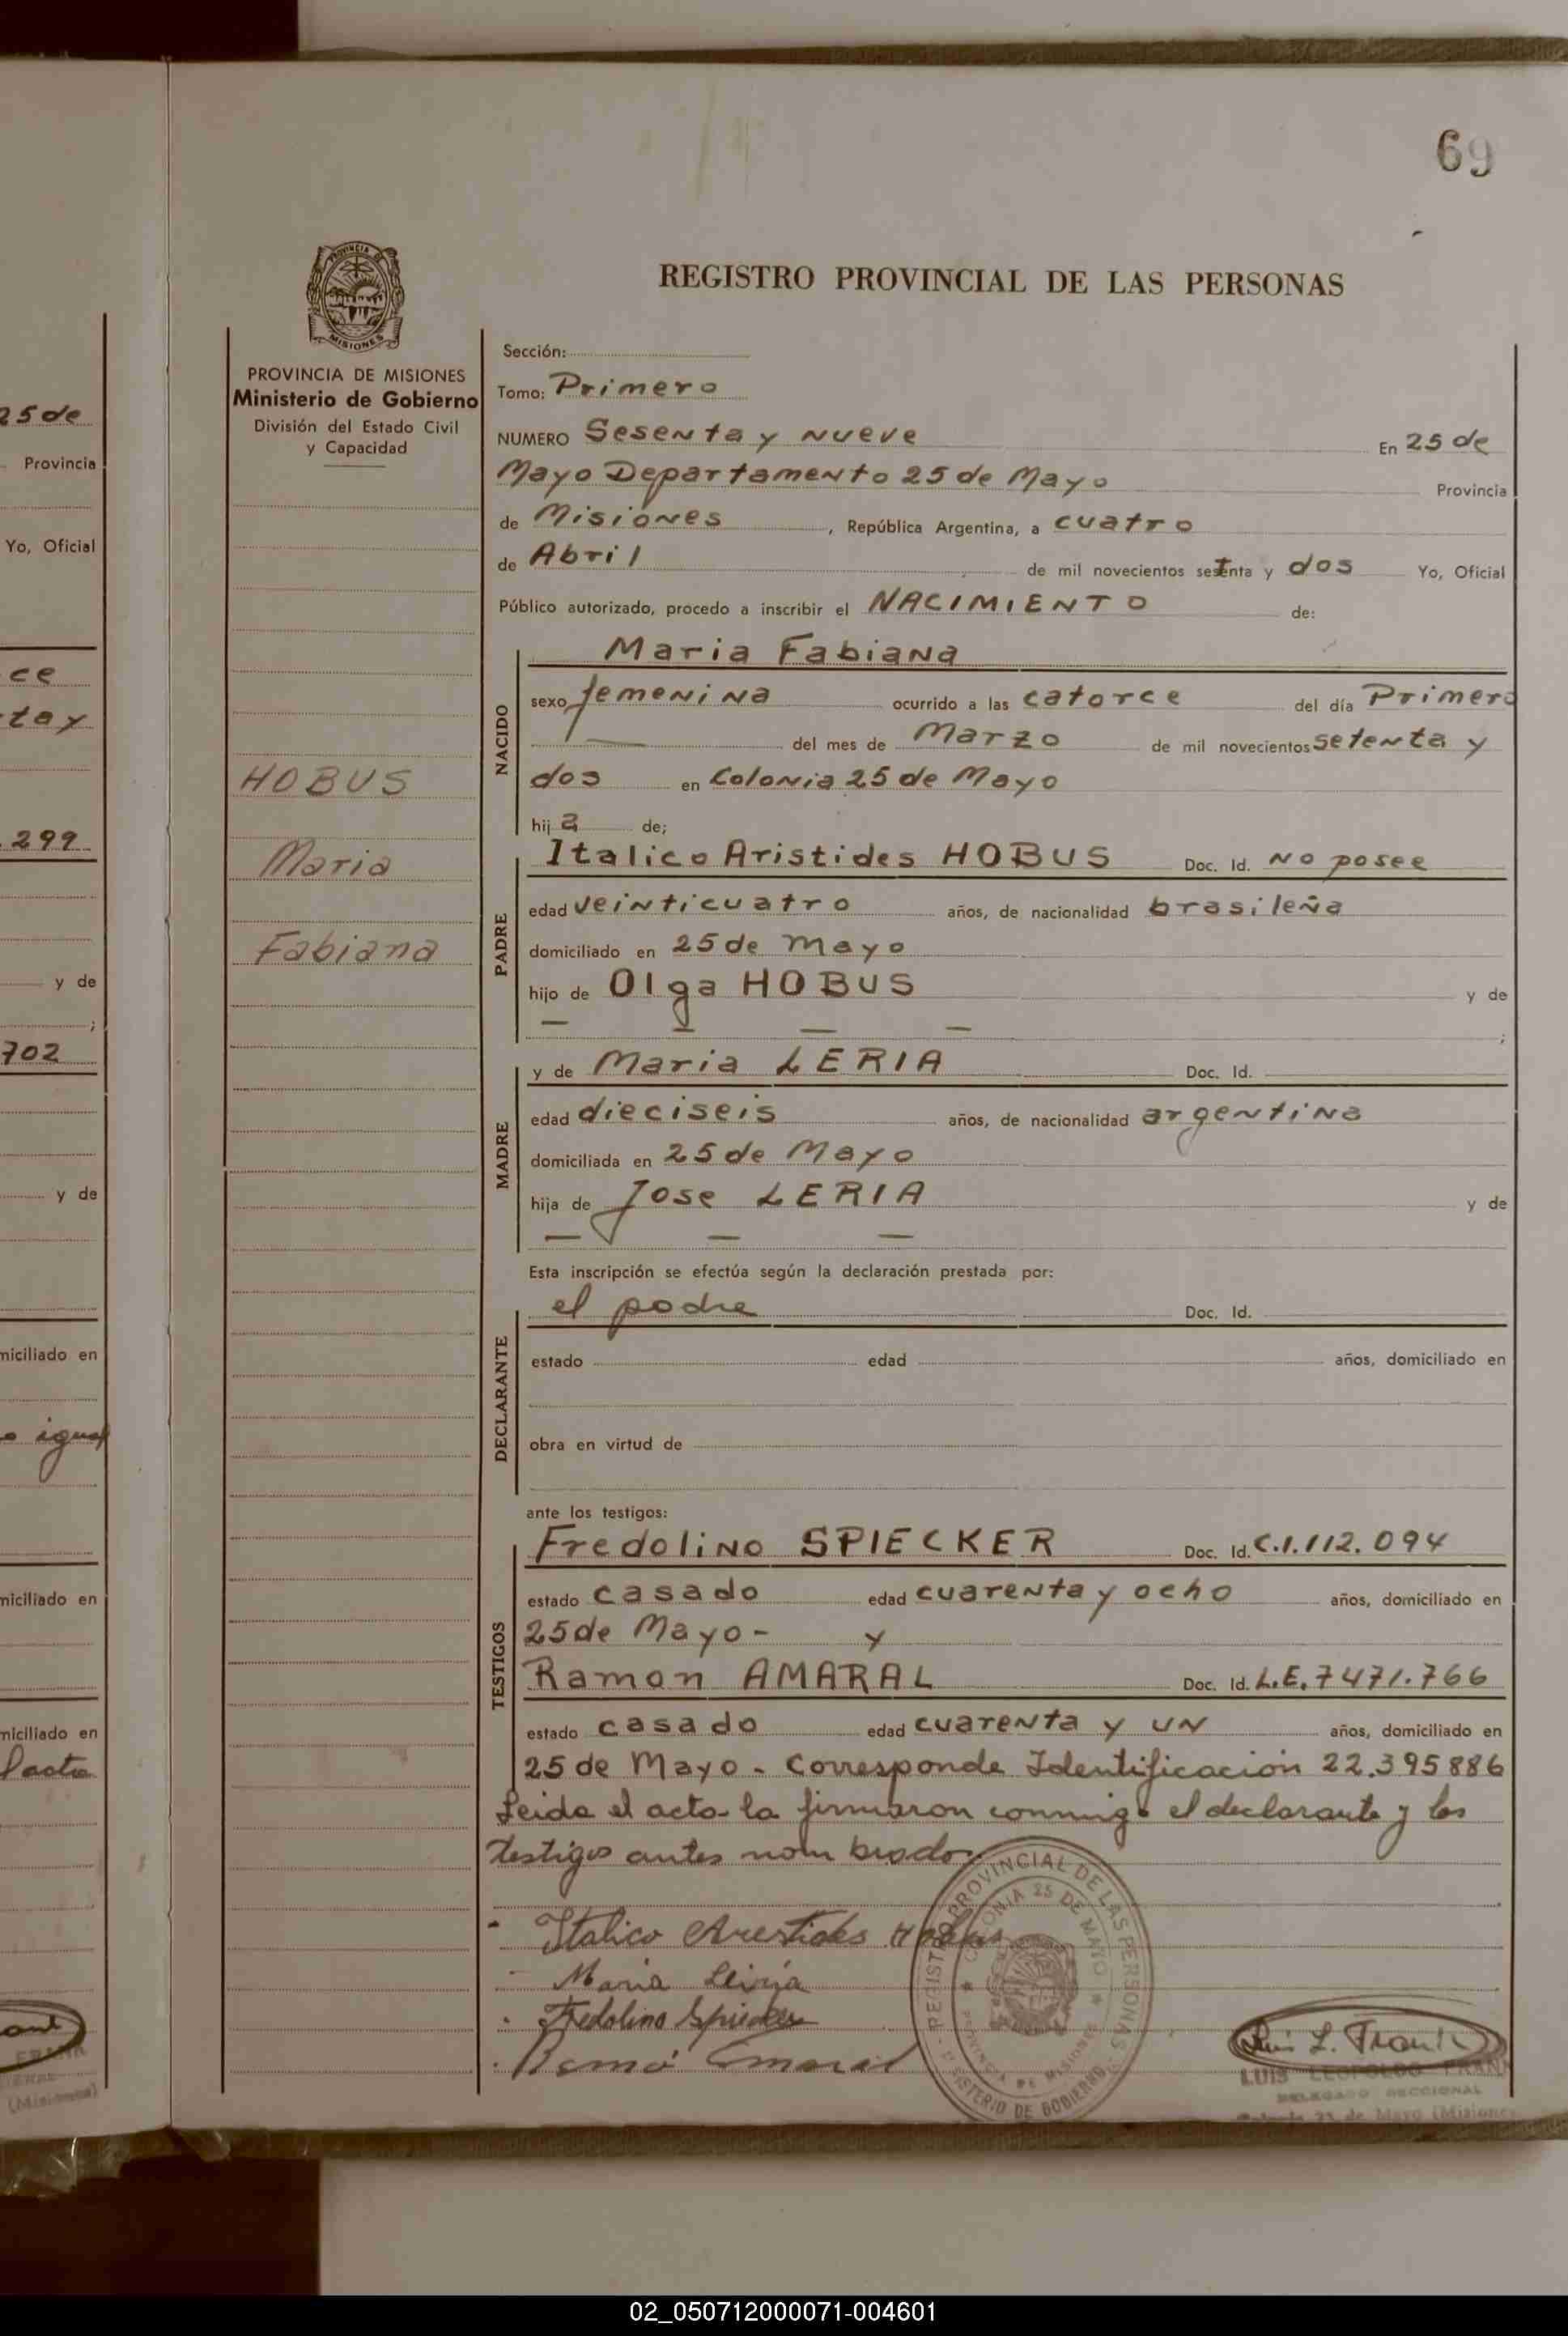 69
REGISTRO PROVINCIAL DE LAS PERSONAS
PROVINCIA DE
MISIONES
PROVINCIA DE MISIONES
Ministerio de Gobierno
División del Estado Civil
y Capacidad
HOBUS
Maria
Fabiana
Sección:
Tomo: Primero
NUMERO Sesenta y nueve En 25 de
Mayo Departamento 25 de Mayo Provincia
de Misiones, República Argentina, a cuatro
de Abril de mil novecientos setenta y dos Yo, Oficial
Público autorizado, procedo a inscribir el NACIMIENTO de:
NACIDO
Maria Fabiana
sexo femenina ocurrido a las catorce del día Primero
del mes de Marzo de mil novecientos setenta y
dos en Colonia 25 de Mayo
hija de;
PADRE
Italico Aristides HOBUS Doc. Id. No posee
edad veinticuatro años, de nacionalidad brasileña
domiciliado en 25 de Mayo
hijo de Olga HOBUS y de
— — — —
;
MADRE
y de Maria LERIA Doc. Id.
edad dieciseis años, de nacionalidad argentina
domiciliada en 25 de Mayo
hija de Jose LERIA y de
— — —
Esta inscripción se efectúa según la declaración prestada por:
DECLARANTE
el padre Doc. Id.
estado edad años, domiciliado en
obra en virtud de
ante los testigos:
TESTIGOS
Fredolino SPIECKER Doc. Id. C.I. 112.094
estado casado edad cuarenta y ocho años, domiciliado en
25 de Mayo - y
Ramon AMARAL Doc. Id. L.E. 7471.766
estado casado edad cuarenta y un años, domiciliado en
25 de Mayo - Corresponde Identificación 22.395886
Leida el acta la firmaron conmigo el declarante y los
testigos antes nombrados
Italico Arestides Hobus
Maria Leiria
Fredolino Spiecker
REGISTRO PROVINCIAL DE LAS PERSONAS
COLONIA 25 DE MAYO
PROVINCIA DE MISIONES
MINISTERIO DE GOBIERNO
Luis L. Frank
LUIS LEOPOLDO FRANK
DELEGADO SECCIONAL
Colonia 25 de Mayo (Misiones
25 de
Provincia
Yo, Oficial
ce
ta y
299
y de
;
702
y de
miciliado en
igual
miciliado en
miciliado en
acta
FRANK
(Misiones)
02_050712000071-004601